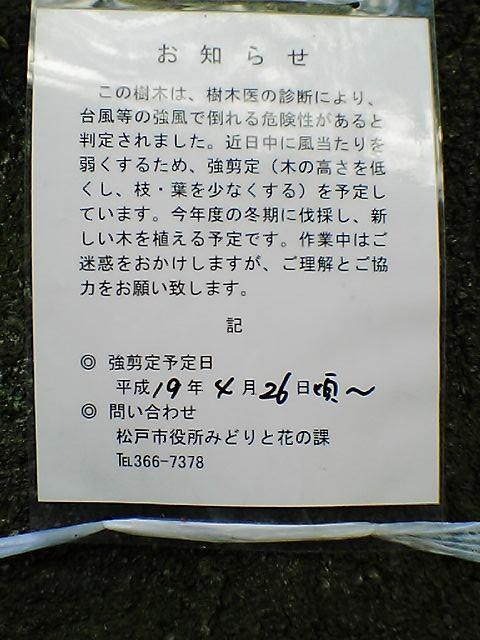 お知らせ
この樹木は、樹木医の診断により、
台風等の強風で倒れる危険性があると
判定されました。近日中に風当たりを
弱くするため、強剪定（木の高さを低
くし、枝・葉を少なくする）を予定し
ています。今年度の冬期に伐採し、新
しい木を植える予定です。作業中はご
迷惑をおかけしますが、ご理解とご協
力をお願い致します。
記
◎ 強剪定予定日
平成19年4月26日頃～
◎ 問い合わせ
松戸市役所みどりと花の課
℡366-7378